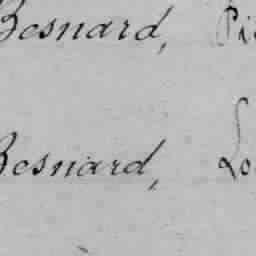 Besnard, Pi
Besnard, Lo